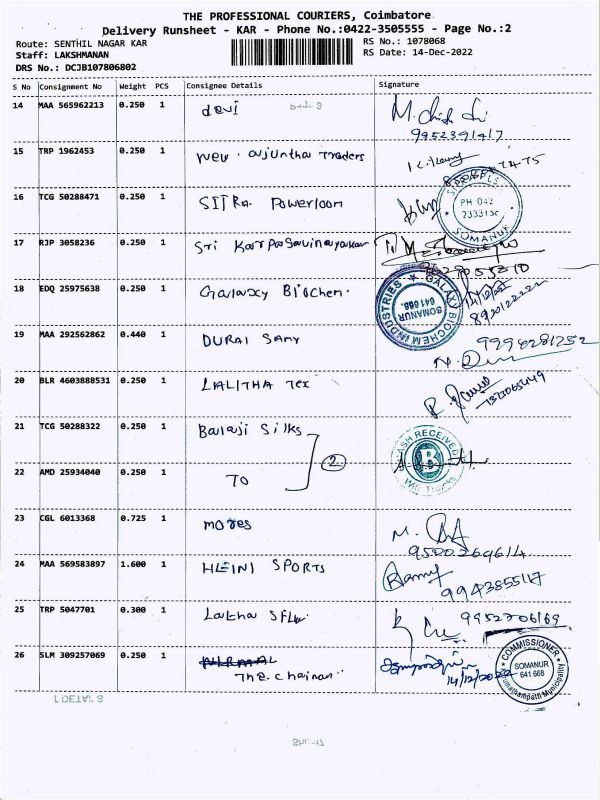 THE PROFESSIONAL COURIERS, Coimbatore
Delivery Runsheet - KAR - Phone No.:0422-3505555 - Page No.:2
Route: SENTHIL NAGAR KAR
RS No.: 1078068
Staff: LAKSHMANAN
RS Date: 14-Dec-2022
DRS No.: DCJB107806802
S No Consignment No Weight PCS Consignee Details Signature
14 MAA 565962213 0.250 1 devi
9952391417
15 TRP 1962453 0.250 1 New Arjuntha Traders
16 TCG 50288471 0.250 1 SITRA Powerloom
PH 042
SOMANUR
17 RJP 3058236 0.250 1 Sri Karpagavinayakar
18 EDQ 25975638 0.250 1 Galaxy Biochem.
GALAXY BIOCHEM INDUSTRIES
SOMANUR
641 668.
19 MAA 292562862 0.440 1 DURAI SAMY
20 BLR 4603888531 0.250 1 LALITHA Tex
21 TCG 50288322 0.250 1 Balaji Silks
RECEIVED
B
2
22 AMD 25934040 0.250 1 TO
23 CGL 6013368 0.725 1 mores
9500269614
24 MAA 569583897 1.600 1 HLEINI SPORTS
25 TRP 5047701 0.300 1
9952706169
26 SLM 309257069 0.250 1 NIRMAL
The. Chairman
14/12/2022
COMMISSIONER
SOMANUR
641 668
Karumathampatti Municipality